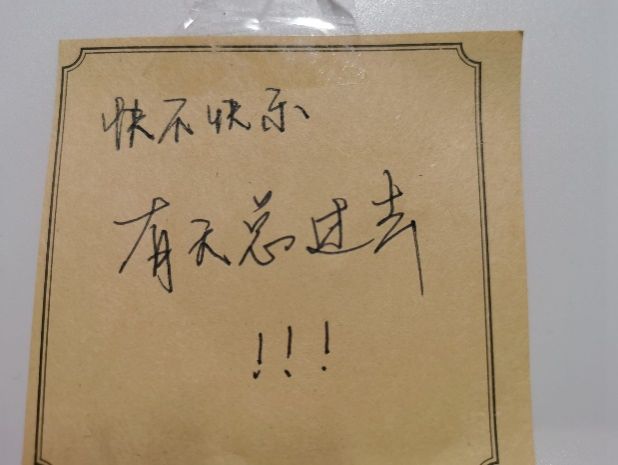 快不快乐
有天总过去
!!!